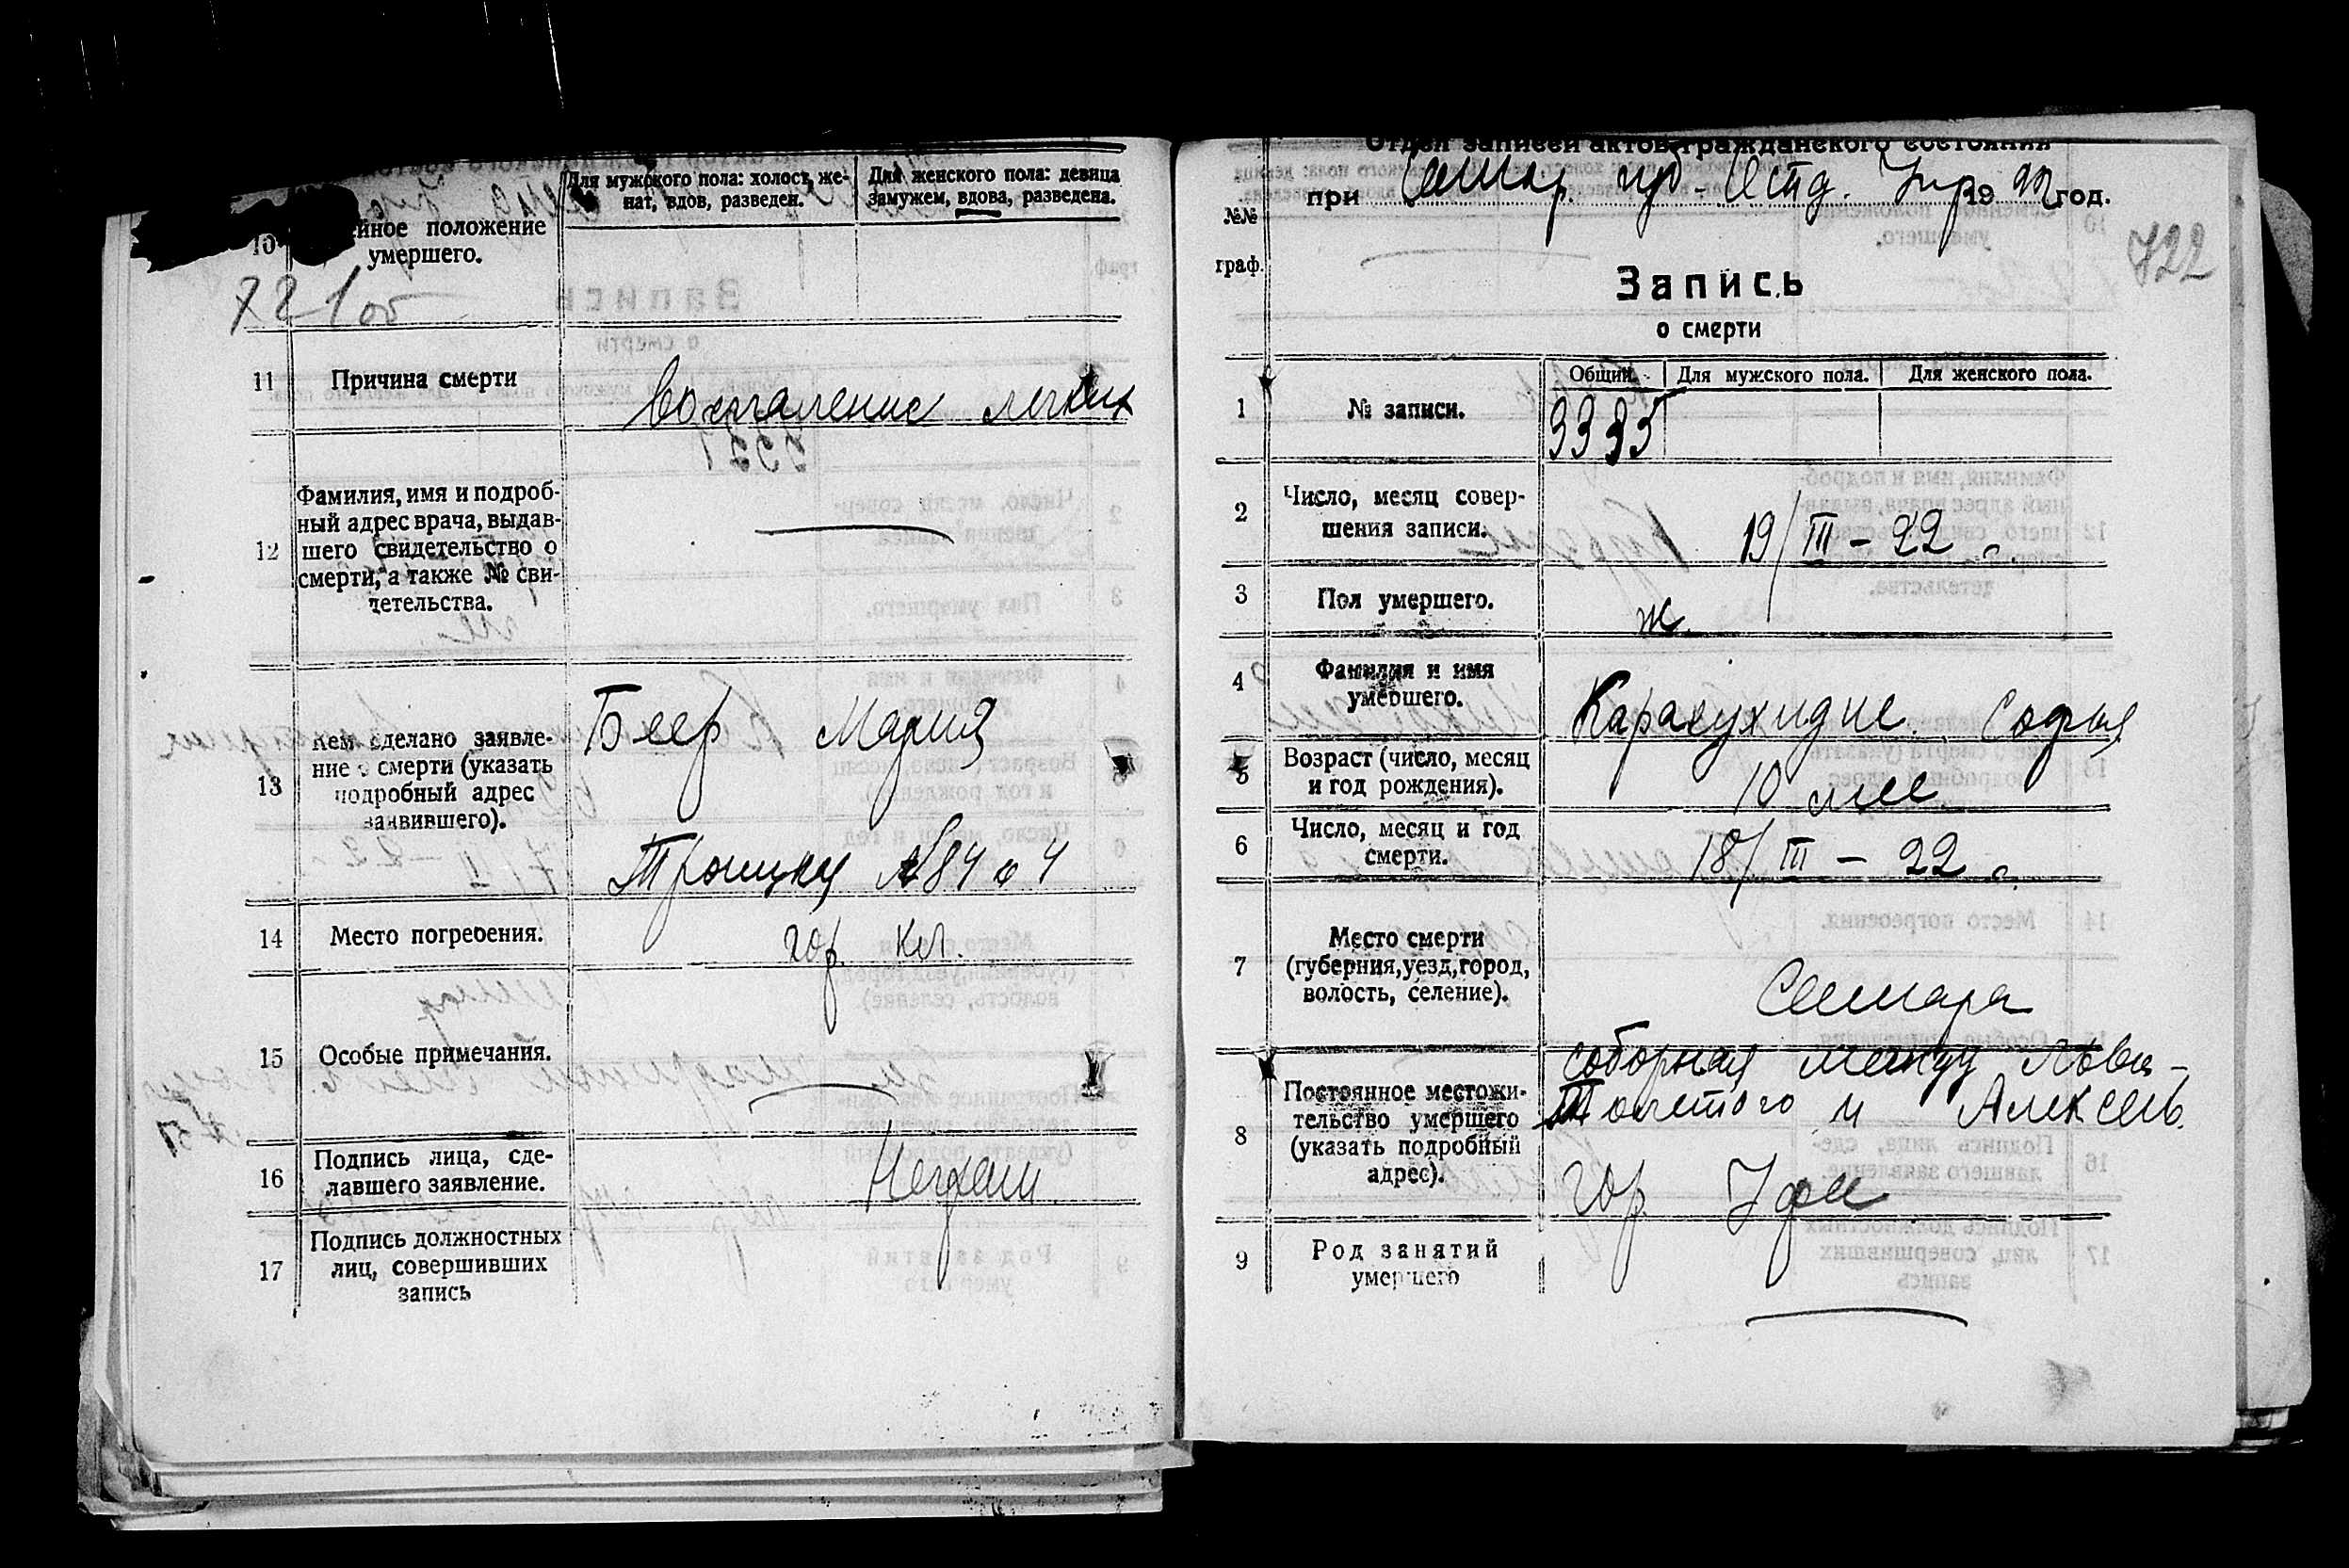 10
йное положение
умершего.
Для мужского пола: холост, же-
нат, вдов, разведен.
Для женского пола: девица
замужем, вдова, разведена.
721 об
11
Причина смерти
Воспаление легких
12
Фамилия, имя и подроб-
ный адрес врача, выдав-
шего свидетельство о
смерти, а также № сви-
детельства.
13
Кем сделано заявле-
ние о смерти (указать
подробный адрес
заявившего).
Беер Мария
№ 84
14
Место погребения.
гор. кл.
15
Особые примечания.
16
Подпись лица, сде-
лавшего заявление.
17
Подпись должностных
лиц, совершивших
запись
Отдел записей актов гражданского состояния
при Самар. губ. Отд. Упр 1922 год.
722
№№
граф.
Запись
о смерти
1
№ записи.
Общий.
Для мужского пола.
Для женского пола.
3335
2
Число, месяц совер-
шения записи.
19/III – 22 г.
3
Пол умершего.
ж.
4
Фамилия и имя
умершего.
София
5
Возраст (число, месяц
и год рождения).
10
6
Число, месяц и год
смерти.
18/III – 22 г.
7
Место смерти
(губерния, уезд, город,
волость, селение).
Самара
8
Постоянное местожи-
тельство умершего
(указать подробный
адрес).
соборная между Льва –
Толстого и Алексеев.
гор Уфа
9
Род занятий
умершего